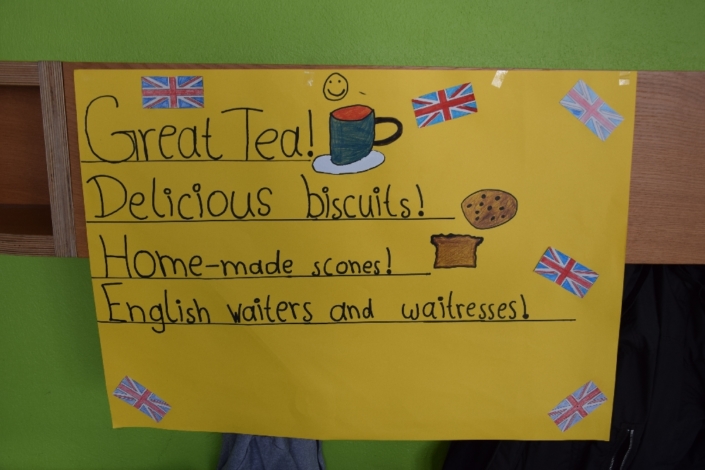 Great Tea!
Delicious biscuits!
Home-made scones!
English waiters and waitresses!